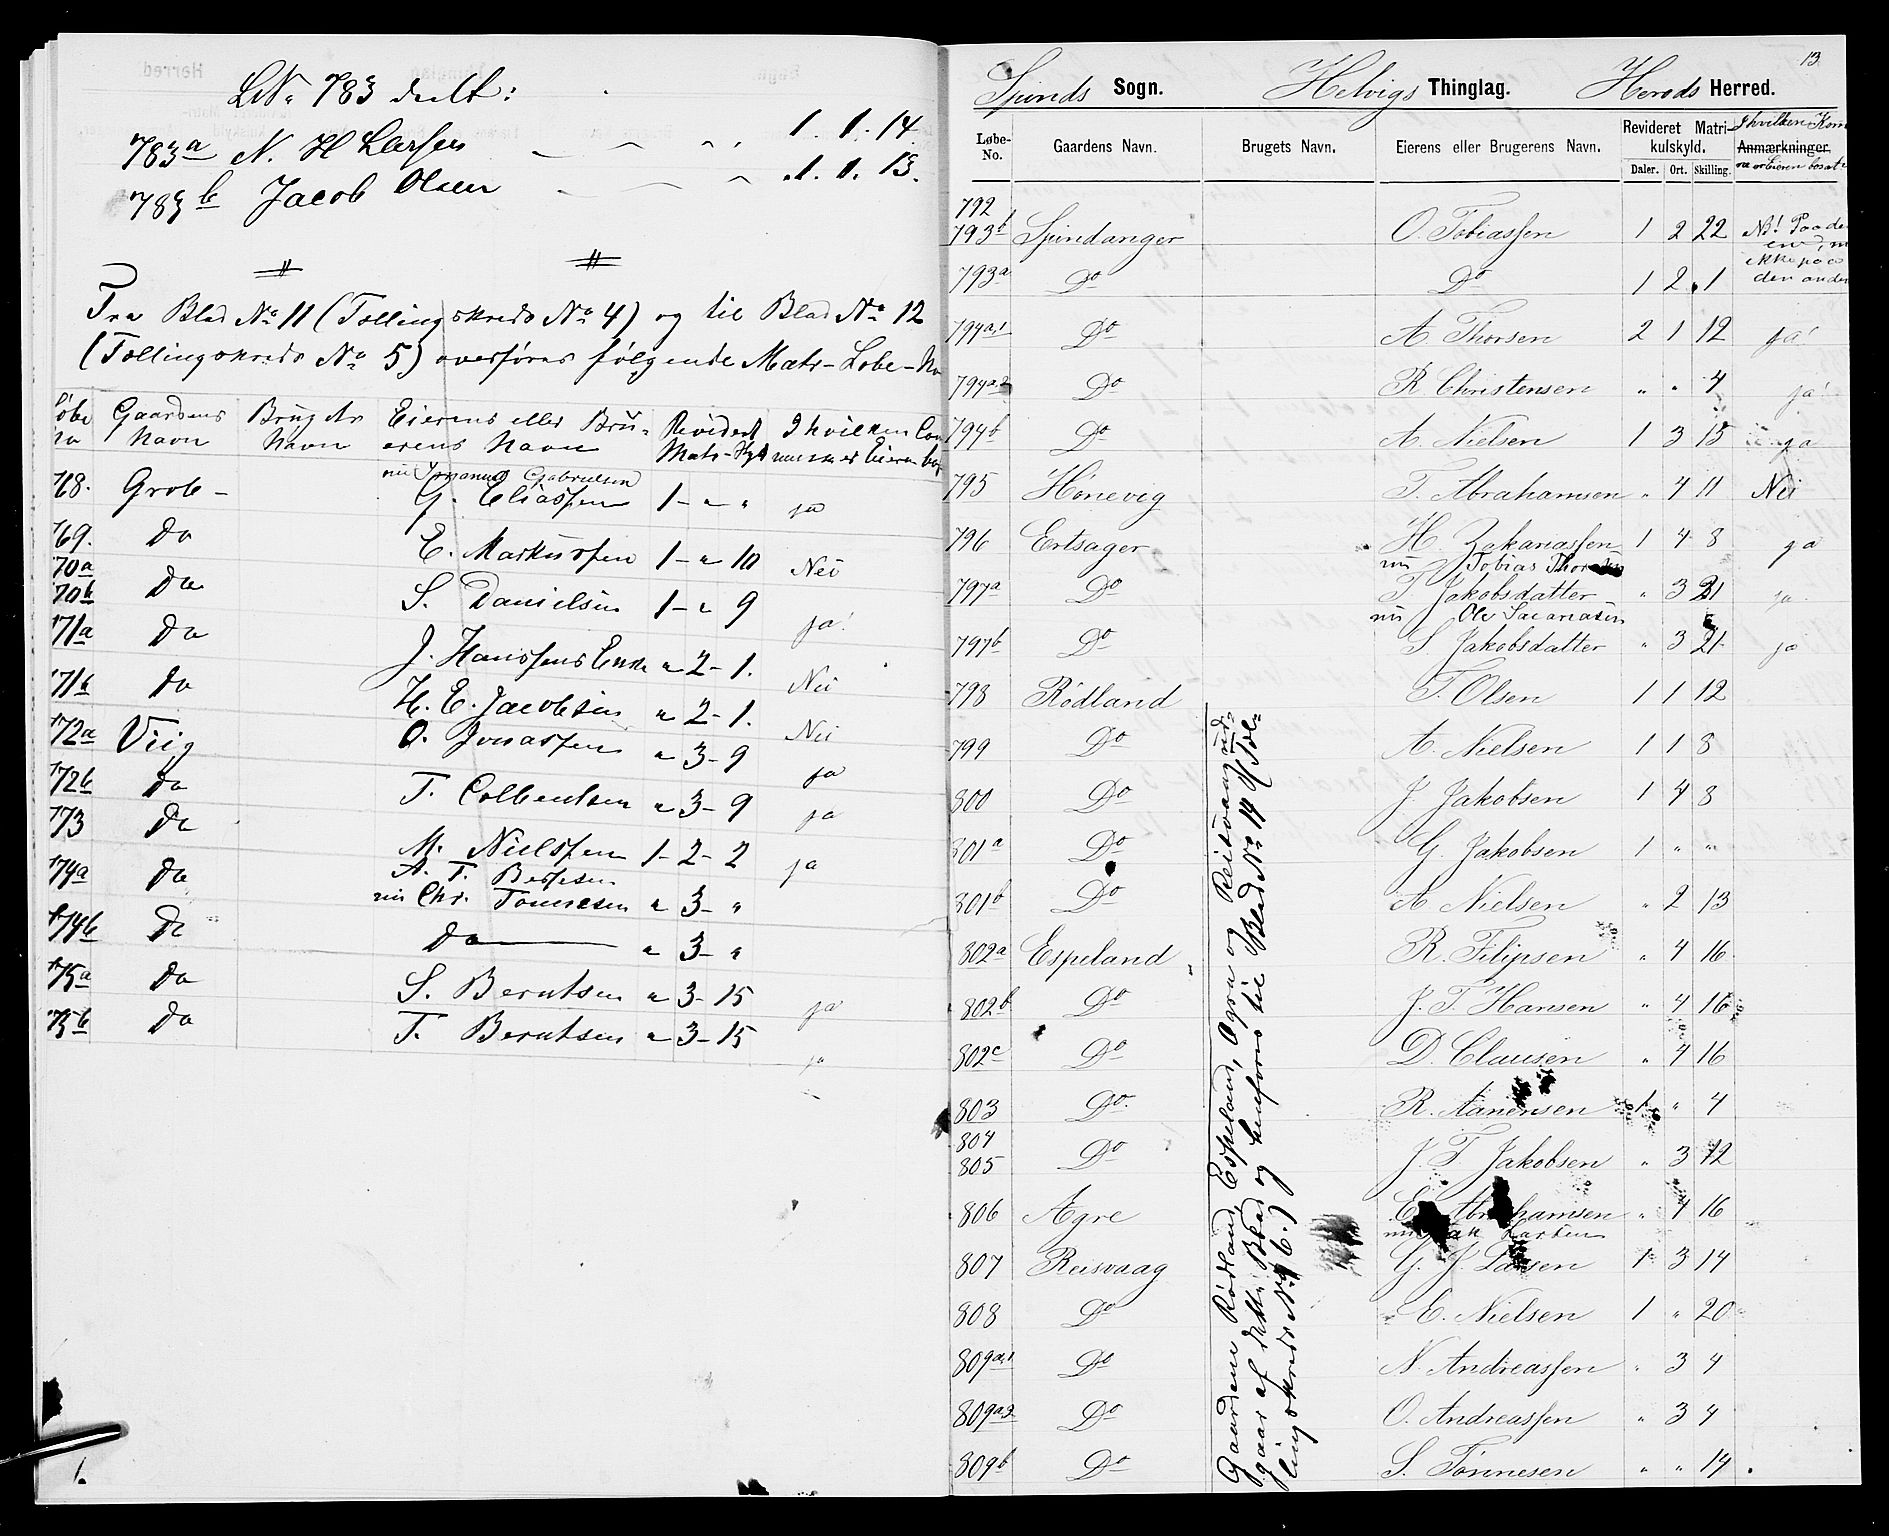 LNr 783 deelt:
783a N. H Larsen 1. 1. 14.
783b Jacob Olsen 1. 1. 13.
Fra Blad No 11 (Tællingskreds No 4) og til Blad No 12
(Tællingskreds No 5) overføres følgende Matr-Løbe-No
Løbe No Gaardens Navn Brugets Navn Eierens eller Brugerens Navn Revideret Matr-Skyld I hvilken Com
mune er Eieren bos
nu Gabrielsen
768. Grob - G. Eliassen 1 - " " ja
769. Do E. Markussen 1 - " 10 Nei
770a
770b Do S. Danielsen 1 - " 9 ja!
771a Do J. Hanssens Enke " 2 - 1. Nei
771b Do H. E. Jacobsen " 2 - 1. Nei
772a Viig O. Jonassen " 3 - 9 ja
772b Do T. Colbentsen " 3 - 9 ja
773 Do M. Nielssen 1 - 2 - 2 ja
A. T. Berssen
774a Do nu Chr. Tønnesen " 3 - "
774b Do Do " 3 - "
775a Do S. Berntsen " 3 - 15 ja
775b Do T. Berntsen " 3 - 15 ja
1.
13
Spinds Sogn. Helvigs Thinglag. Herads Herred.
Løbe-No. Gaardens Navn. Brugets Navn. Eierens eller Brugerens Navn. Revideret Matrikulskyld. Daler. Ort. Skilling. Anmærkninger.
I hvilken Kom
ne er Eieren bosat
792
793b Spindanger O. Tobiassen 1 2 22 NB! Paa den
ene, m
ikke paa
den anden
793a Do Do 1 2 1
794a,1 Do A. Thorsen 2 1 12 ja!
794a,2 Do R. Christensen " " 4 ja!
794b Do A. Nielsen 1 3 15 ja
795 Hønevig T. Abrahamsen " 4 11 Nei
796 Ertsager H. Zakariassen 1 4 8 ja
nu Tobias Thorsen
797a Do T. Jakobsdatter " 3 21 ja
nu Ole Sacariasen
797b Do S. Jakobsdatter " 3 21 ja
798 Rødland T. Olsen 1 1 12
799 Do A. Nielsen 1 1 8
800 Do J. Jakobsen 1 4 8
801a Do G. Jakobsen 1 " "
801b Do A. Nielsen " 2 13
802a Espeland R. Filipsen " 4 16
802b Do J. T. Hansen " 4 16
802c Do D. Clausen " 4 16
803 Do R. Aanensen 1 " 4
804
805 Do J. T. Jakobsen " 3 12
806 Agre E. Abrahamsen " 4 16
nu Larsen
807 Reisvaag G. J. Larsen 1 3 14
808 Do E. Nielsen 1 " 20
809a,1 Do N. Andreassen " 3 4
809a,2 Do O. Andreassen " 3 4
809b Do S. Tønnesen " " 14
Gaardene Rødland, Espeland, Agre og Reisvaag ud-
gaar af dette Blad og henføres til Blad No 14 (Tæl-
lingskreds No 6.)